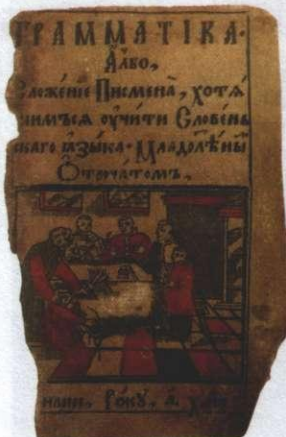 ГРАММАТІКА·
А҆лбо,
Сложе́нїе Писмена̀, хотѧ́
щимъсѧ оу҆чи́ти Слове́нь
скагѡ ꙗ҆зы́ка· Младолѣ́тны
Ѻ҆троча́томъ,
Рокꙋ, а҂